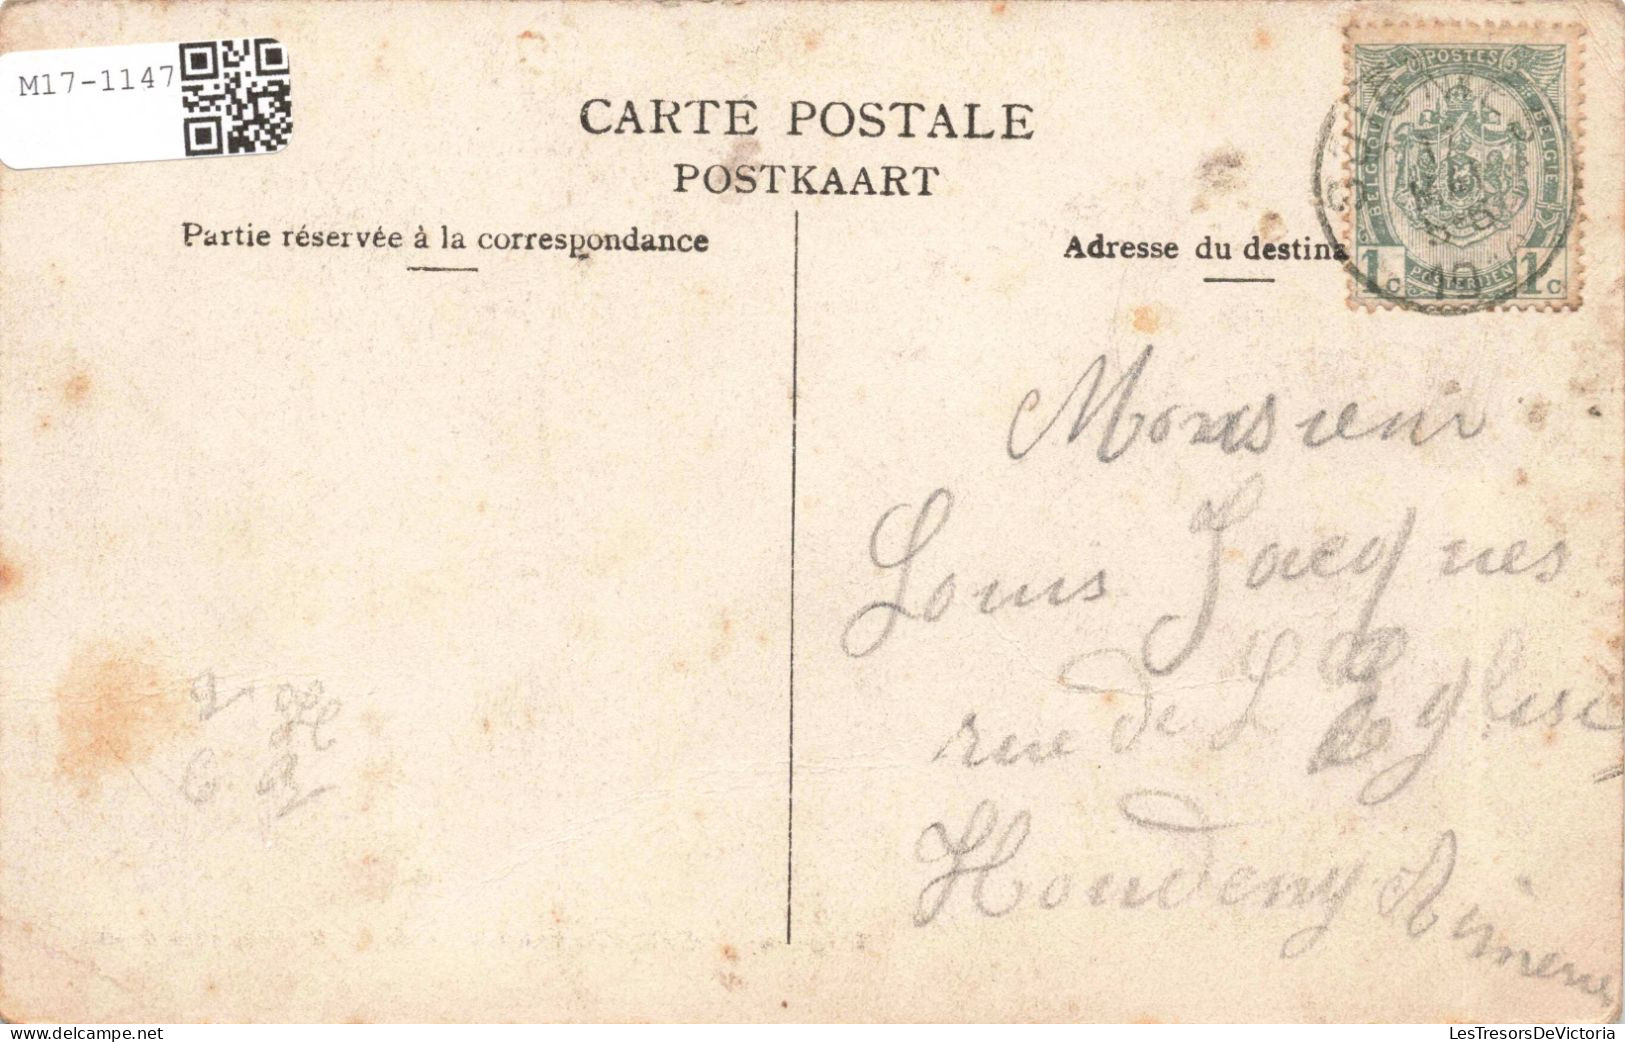 M17-1147
CARTE POSTALE
POSTKAART
Partie réservée à la correspondance
Adresse du destina
POSTES
BELGIQUE
BELGIE
1c POSTERIJEN 1c
Monsieur
Louis Jacques
rue de L Eglise
Houdeng
LesTresorsDeVictoria.com